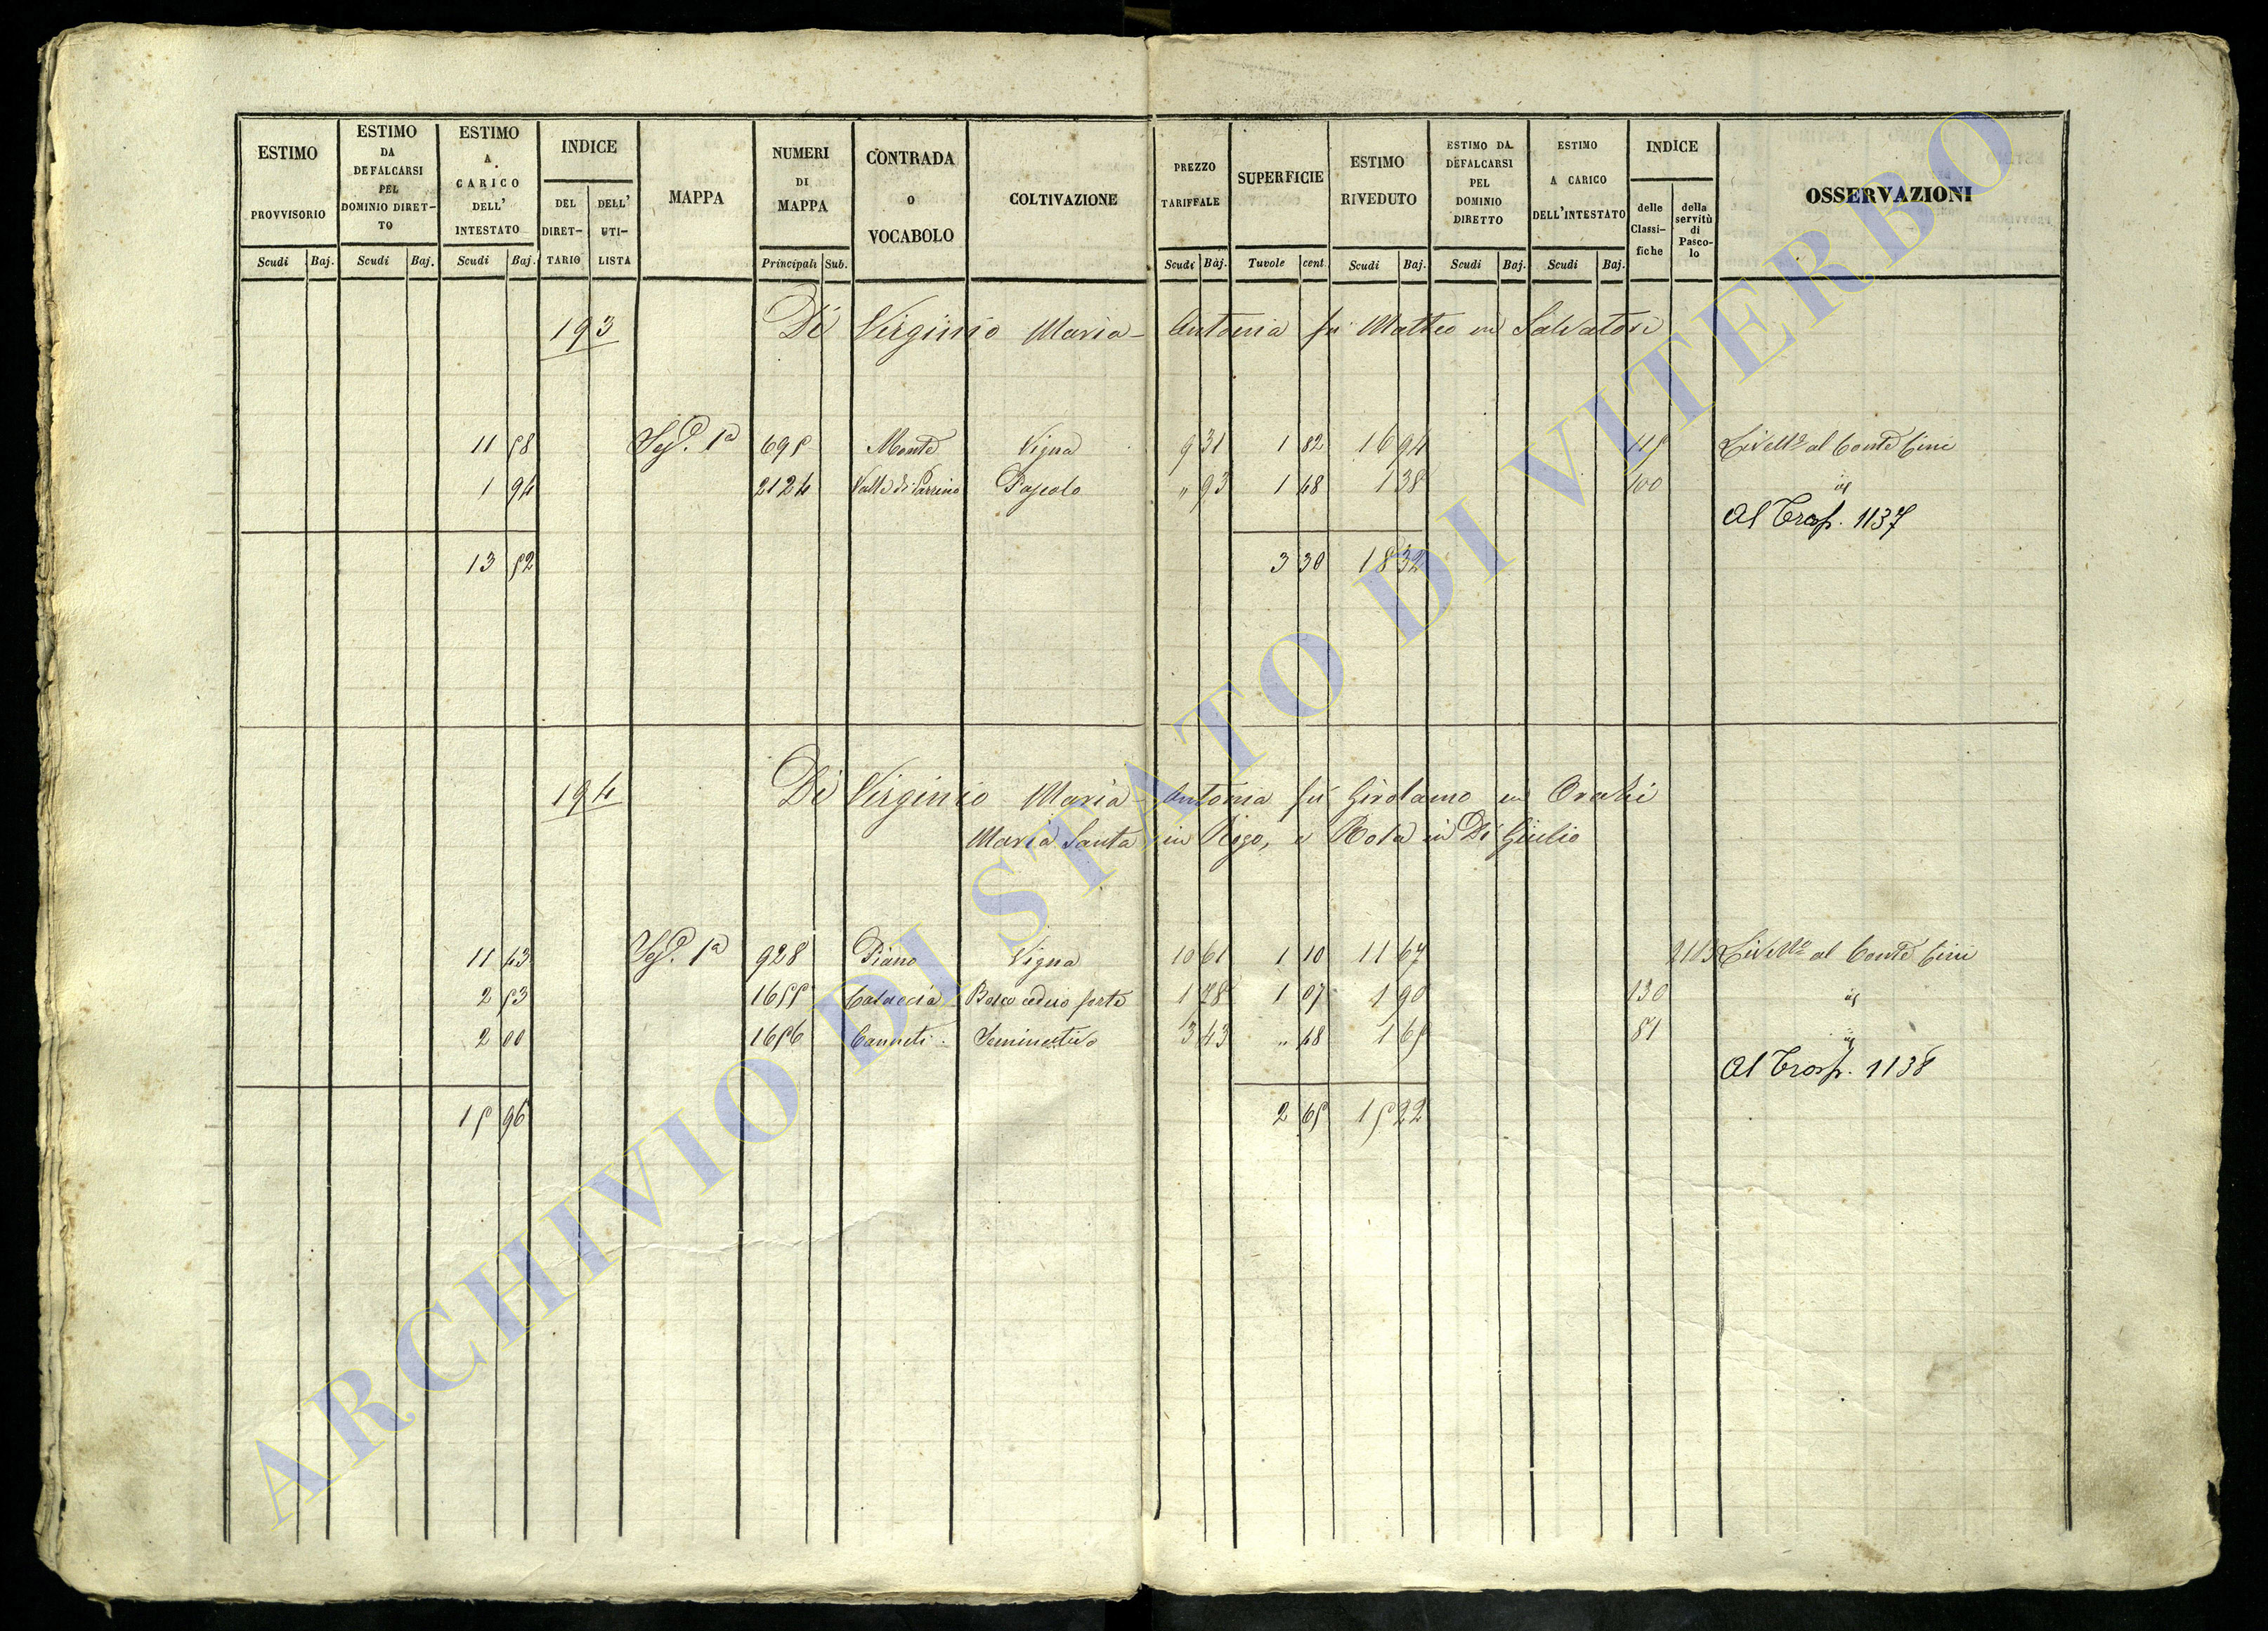 ESTIMO PROVVISORIO Scudi Baj.
ESTIMO DA DEFALCARSI PEL DOMINIO DIRET-TO Scudi Baj.
ESTIMO A CARICO DELL' INTESTATO Scudi Baj.
INDICE DEL DIRET-TARIO DELL' UTI-LISTA
MAPPA
NUMERI DI MAPPA Principali Sub.
CONTRADA O VOCABOLO
COLTIVAZIONE
PREZZO TARIFFALE Scudi Baj.
SUPERFICIE Tavole cent.
ESTIMO RIVEDUTO Scudi Baj.
ESTIMO DA DEFALCARSI PEL DOMINIO DIRETTO Scudi Baj.
ESTIMO A CARICO DELL'INTESTATO Scudi Baj.
INDICE delle Classi-fiche della servitù di Pasco-lo
OSSERVAZIONI
193 Di Virginio Maria- Antonia fu Matteo in Salvatori
11 58 Sez. 1a 695 Monte Vigna 9 31 1 82 16 94 115 Livello al Conte Cini
1 94 2124 Valle di Pascolo " 93 1 48 1 38 100 id
Al Trasp. 1137
13 52 3 30 18 32
194 Di Virginio Maria- Antonia fu Girolamo in Orachi
Maria Santa in Rigo, e Rosa in Di Giulio
11 43 Sez. 1a 928 Piano Vigna 10 61 1 10 11 67 Livello al Conte Cini
2 53 1655 Bosco ceduo forte 1 78 1 07 1 90 130 id
2 00 1656 Canneti Seminativo 3 43 " 48 1 65 81 id
Al Trasp. 1138
15 96 2 65 15 22
ARCHIVIO DI STATO DI VITERBO